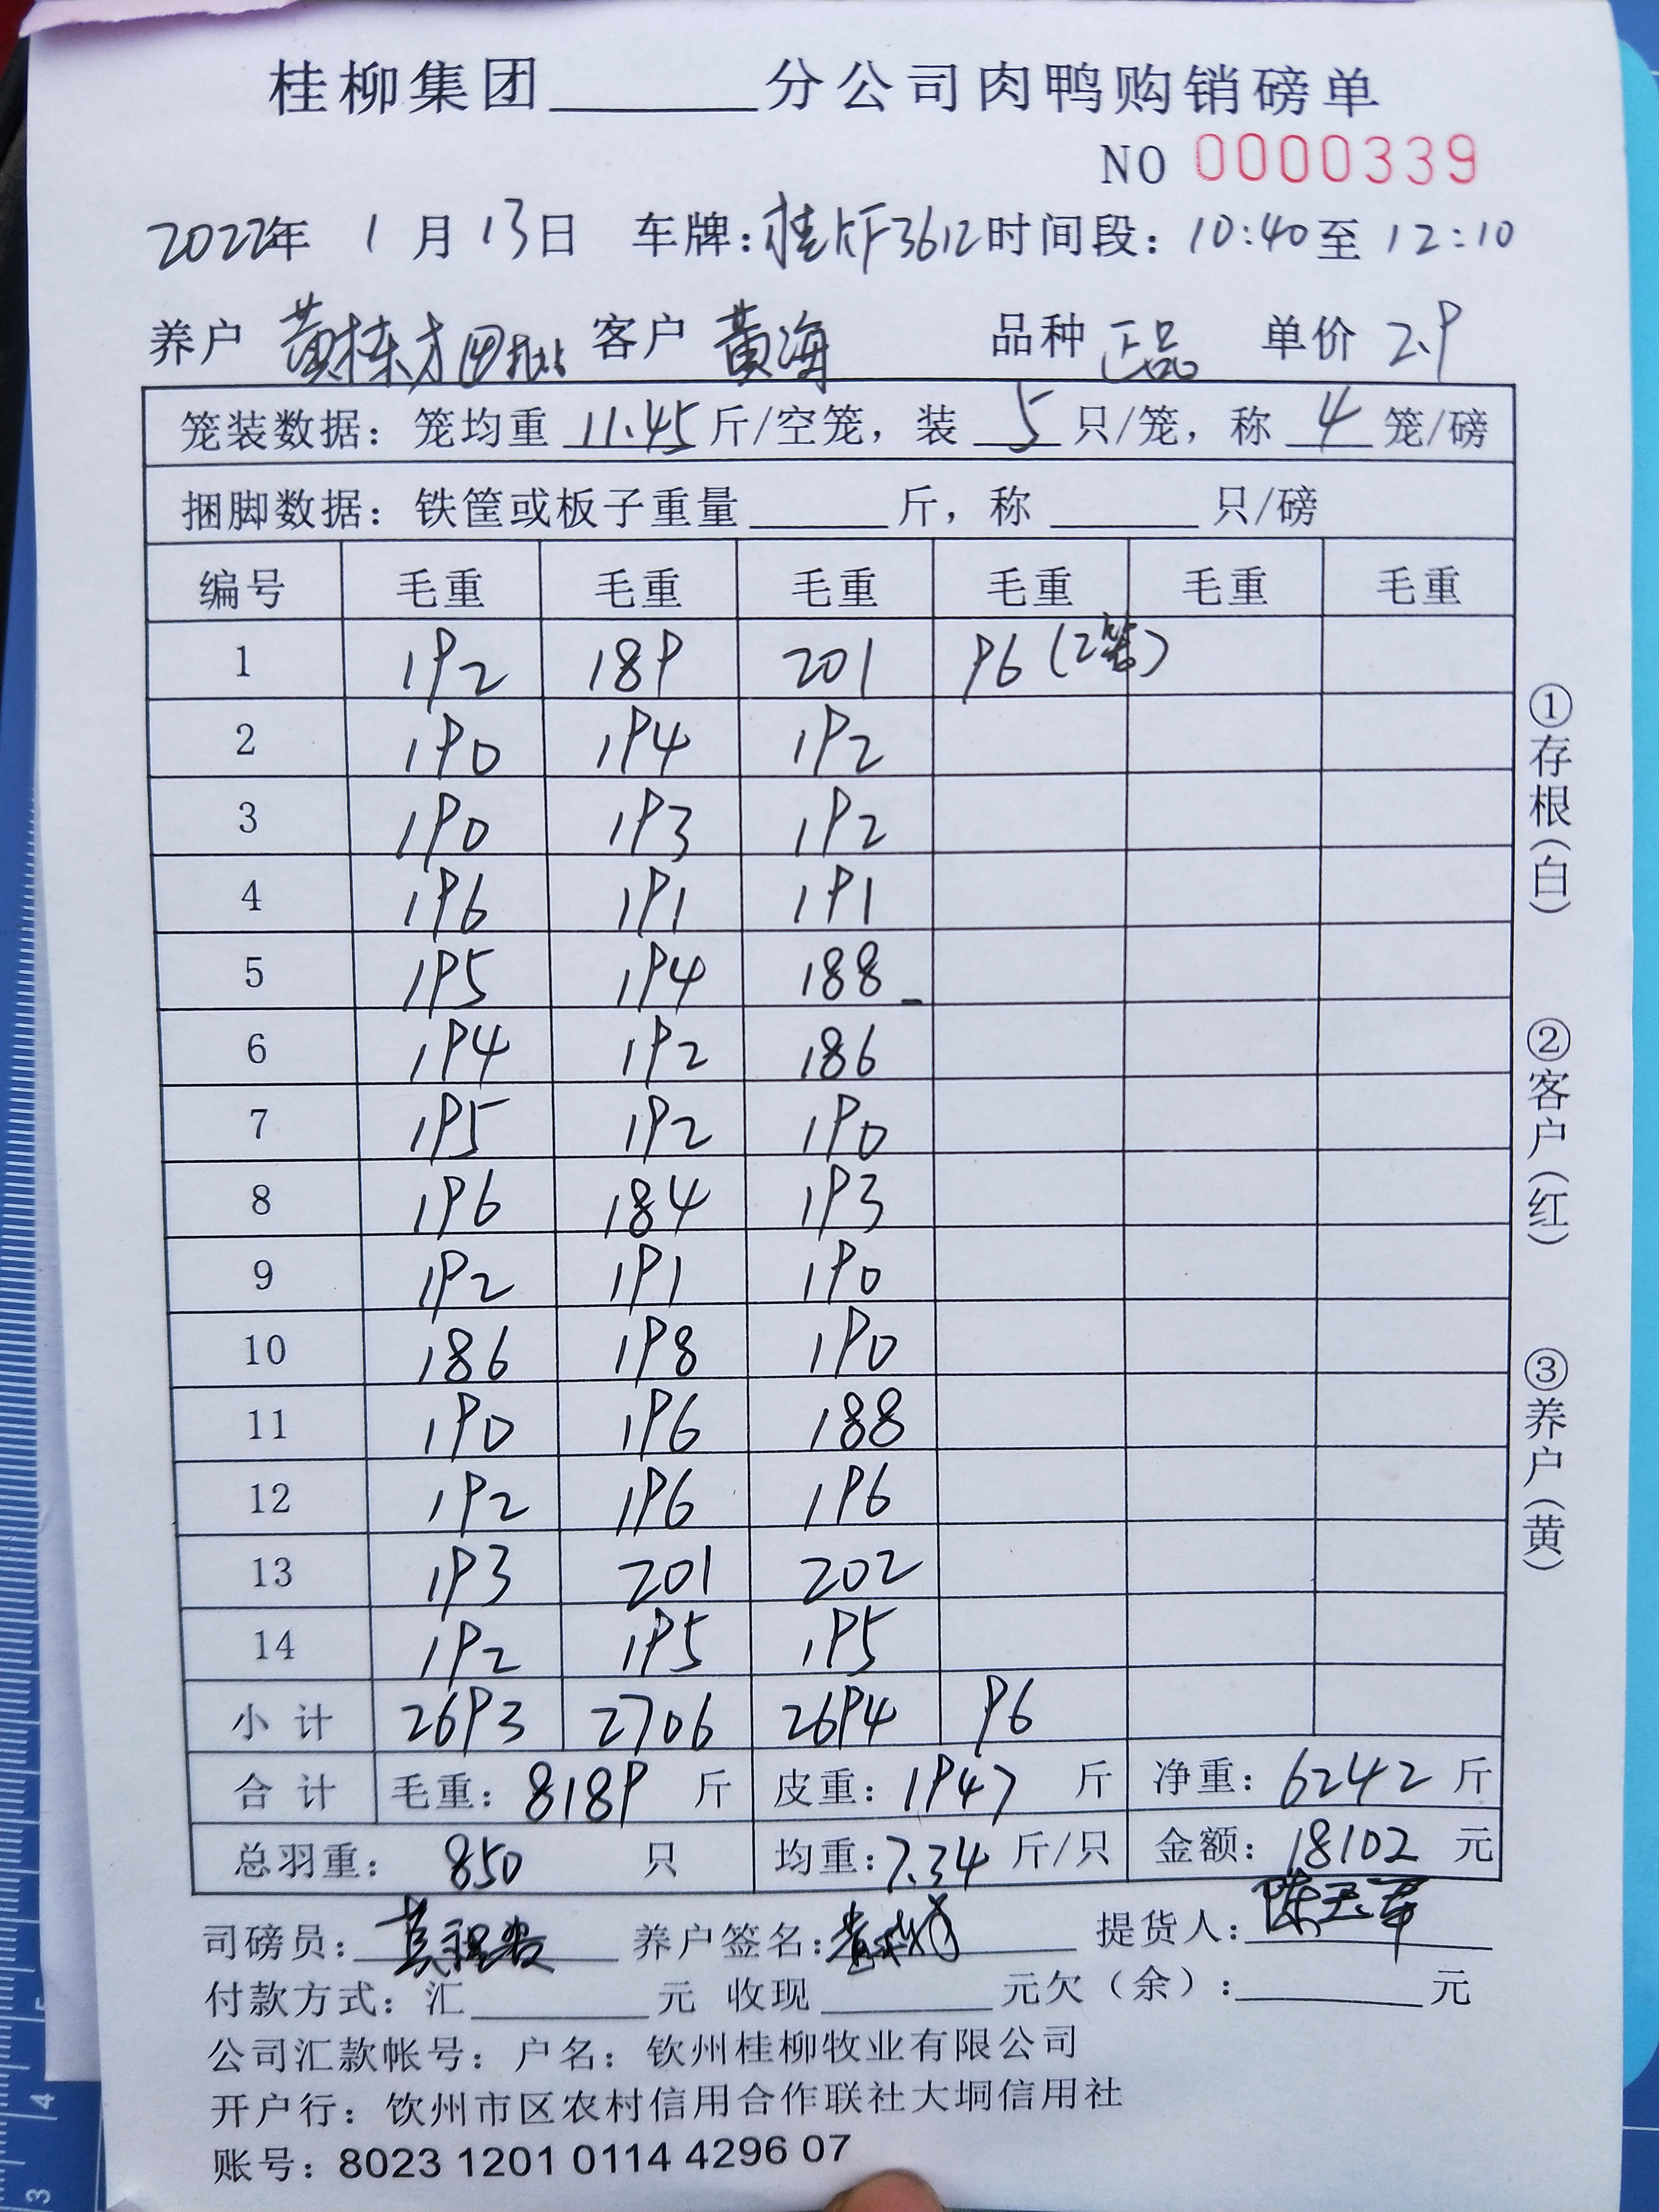 桂柳集团______分公司肉鸭购销磅单
NO 0000339
2022年 1月13日 车牌:桂KF3612 时间段:10:40至12:10
养户 黄栋才 客户 黄海 品种 正品 单价 2.9
笼装数据:笼均重 11.45 斤/空笼,装 5 只/笼,称 4 笼/磅
捆脚数据:铁筐或板子重量______斤,称______只/磅
编号 毛重 毛重 毛重 毛重 毛重 毛重
1 192 189 201 96(2笼)
2 190 194 192
3 190 193 192
4 196 191 191
5 195 194 188
6 194 192 186
7 195 192 190
8 196 184 193
9 192 191 190
10 186 198 190
11 190 196 188
12 192 196 196
13 193 201 202
14 192 195 195
小计 2693 2706 2694 96
合计 毛重:8189斤 皮重:1947斤 净重:6242斤
总羽重:850只 均重:7.34斤/只 金额:18102元
司磅员: 养户签名: 提货人:陈玉军
付款方式:汇______元 收现______元欠(余):______元
公司汇款帐号:户名:钦州桂柳牧业有限公司
开户行:钦州市区农村信用合作联社大垌信用社
账号:8023 1201 0114 4296 07
①存根(白)
②客户(红)
③养户(黄)